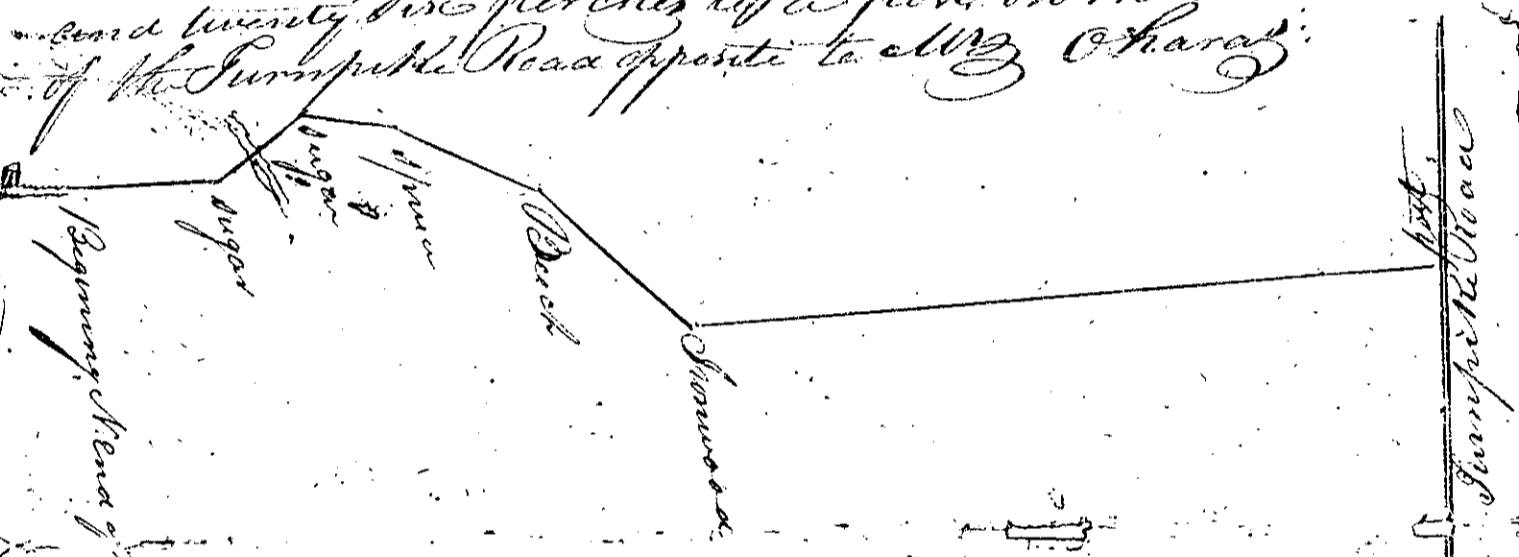 and twenty six perches to a post on the
of the Turnpike Road opposite to Mrs Oharas:
Begining N. End of
sugar
sugar
Spruce
Beech
Ironwood
post
Turnpike Road